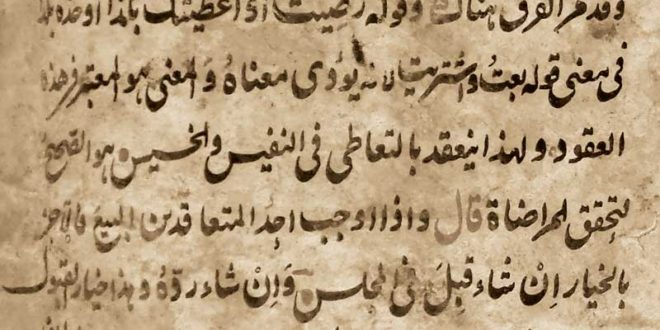 وقد مر الفرق هناك وقوله رضيت او اعطيتك بكذا او خذه بكذا
فى معنى قوله بعت واشتريت لانه يؤدى معناه والمعنى هو المعتبر فى هذه
العقود ولهذا ينعقد بالتعاطى فى النفيس والخسيس هو الصحيح
لتحقق المراضاة قال واذا اوجب احد المتعاقدين البيع فالاخر
بالخيار اِنْ شاء قبِلَ فى المجلس وَاِنْ شاء ردّهُ وهذا خيار القبول